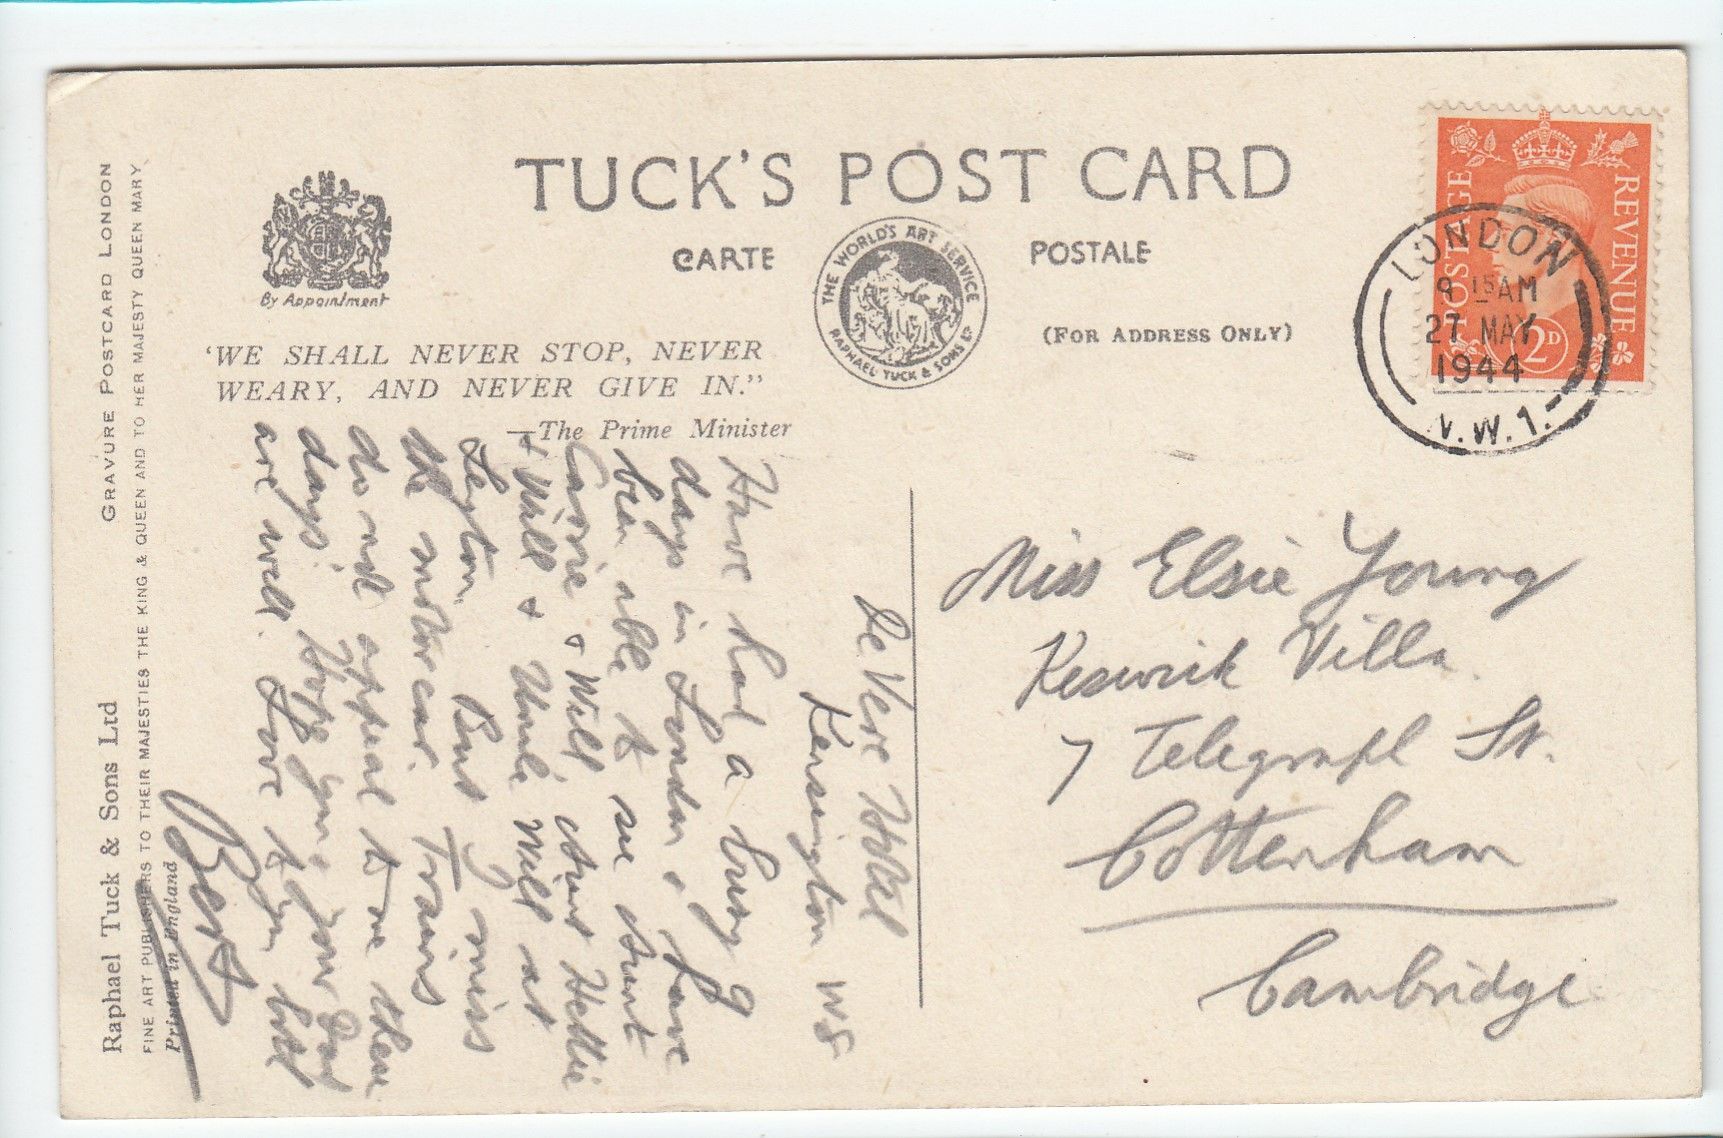 TUCK'S POST CARD
CARTE POSTALE
(FOR ADDRESS ONLY)
By Appointment
THE WORLD'S ART SERVICE
RAPHAEL TUCK & SONS LD
'WE SHALL NEVER STOP, NEVER
WEARY, AND NEVER GIVE IN."
—The Prime Minister
POSTAGE REVENUE
2D
LONDON
9 15 AM
27 MAY
1944
N.W.1.
GRAVURE POSTCARD LONDON
Raphael Tuck & Sons Ltd
FINE ART PUBLISHERS TO THEIR MAJESTIES THE KING & QUEEN AND TO HER MAJESTY QUEEN MARY
Printed in England
De Vere Hotel
Kensington W8
Have had a busy 9
days in London & have
been able to see Aunt
Carrie & Will, Aunt Hettie
& Will & Uncle Will at
Leyton. But I miss
the motor car. Trains
do not appeal to me these
days. Hope you & your Dad
are well. Love to you both
Bert
Miss Elsie Young
Keswick Villa
7 Telegraph St.
Cottenham
Cambridge